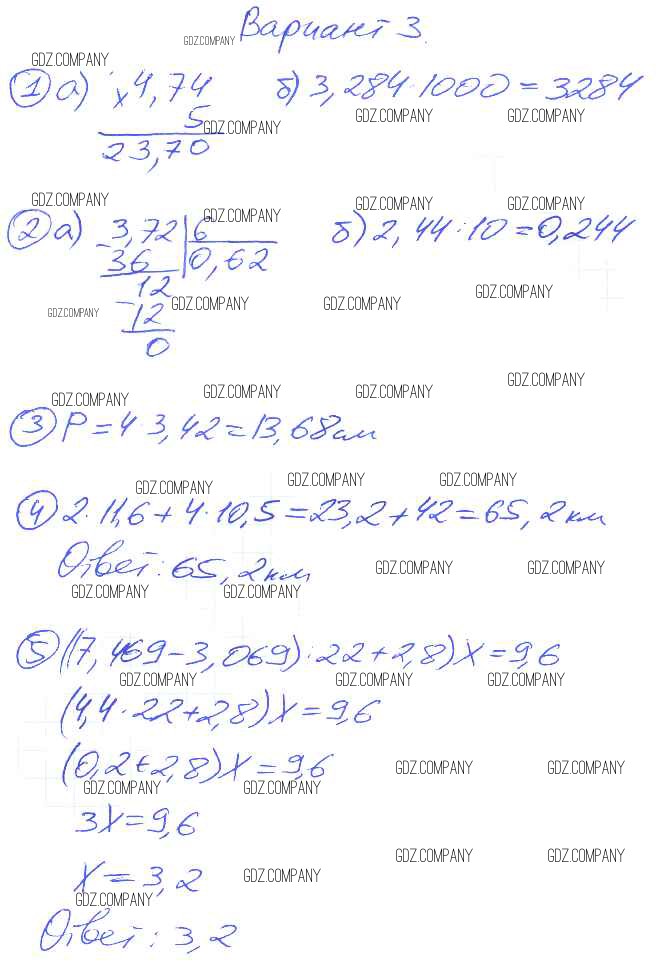 Вариант 3.
GDZ.COMPANY
GDZ.COMPANY
① а) × 4,74 б) 3,284·1000 = 3284
5
GDZ.COMPANY GDZ.COMPANY GDZ.COMPANY
23,70
GDZ.COMPANY GDZ.COMPANY GDZ.COMPANY GDZ.COMPANY
② а) 3,72 | 6 б) 2,44:10=0,244
- 36 0,62
12
GDZ.COMPANY GDZ.COMPANY GDZ.COMPANY
GDZ.COMPANY - 12
0
GDZ.COMPANY GDZ.COMPANY GDZ.COMPANY GDZ.COMPANY
③ P = 4·3,42 = 13,68 см
GDZ.COMPANY GDZ.COMPANY GDZ.COMPANY
④ 2·11,6 + 4·10,5 = 23,2 + 42 = 65,2 км
Ответ: 65,2 км
GDZ.COMPANY GDZ.COMPANY
GDZ.COMPANY GDZ.COMPANY
⑤ ((7,469 - 3,069):22 + 2,8) X = 9,6
GDZ.COMPANY GDZ.COMPANY GDZ.COMPANY
(4,4:22 + 2,8) X = 9,6
(0,2 + 2,8) X = 9,6
GDZ.COMPANY GDZ.COMPANY
GDZ.COMPANY GDZ.COMPANY
3X = 9,6
GDZ.COMPANY GDZ.COMPANY
X = 3,2
GDZ.COMPANY
GDZ.COMPANY
Ответ: 3,2